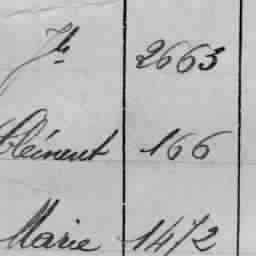 Jh 2663
Clément 166
Marie 1472